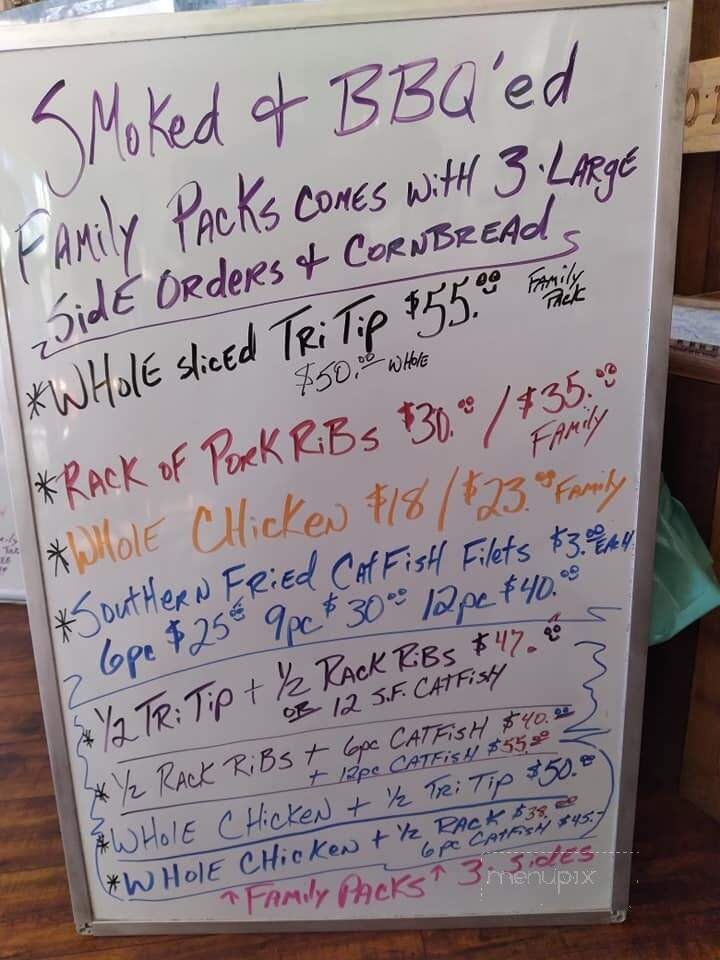 SMoKed & BBQ'ed
FAMily PACKs COMES WITH 3·LARgE
SidE ORdERs & CORNBREAds
*WHOlE slicEd TRi Tip $55.00 FAMily PACK
$50.00 WHOlE
*RACK OF PORK RiBs $30.00 / $35.00
FAMily
*WHOlE CHicKeN $18 / $23.00 FAMily
*SOuTHERN FRiEd CATFisH Filets $3.00 EACH
6pc $25.00 9pc $30.00 12pc $40.00
*1/2 TRi Tip + 1/2 RACK RiBs $47.00
OR 12 S.F. CATFisH
*1/2 RACK RiBs + 6pc CATFisH $40.00
+ 12pc CATFisH $55.00
*WHOlE CHicKeN + 1/2 TRi Tip $50.00
*WHOlE CHicKeN + 1/2 RACK $38.00
6 pc CATFisH $45.-
↑FAMily PACKs↑ 3. SidEs
menupix